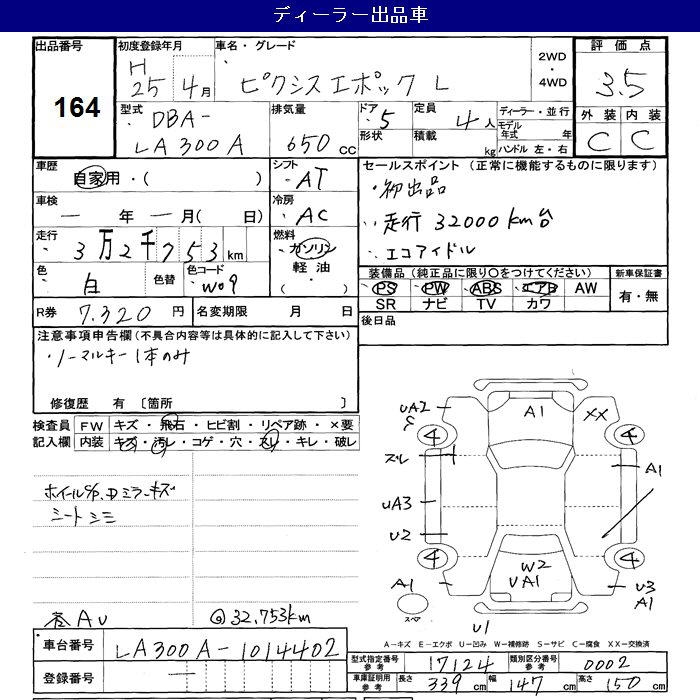 ディーラー出品車
出品番号 初度登録年月 車名・グレード 評価点
164
H 25 4月 ピクシスエポック L 2WD・4WD 3.5
型式 排気量 ドア 定員 ディーラー・並行 外装 内装
DBA- 5 4人 モデル年式 年 C C
LA300A 650cc 形状 積載 kg ハンドル 左・右
車歴 シフト セールスポイント (正常に機能するものに限ります)
自家用・( ) AT ・初出品
車検 冷房
ー年ー月( 日) AC ・走行 32000km台
走行 燃料
3万2千753km ガソリン ・エコアイドル
色 色替 色コード 軽油・
白 W09 ( )
装備品 (純正品に限り○をつけてください) 新車保証書
PS PW ABS エアB AW 有・無
SR ナビ TV カワ
R券 7,320円 名変期限 月 日 後日品
注意事項申告欄 (不具合内容等は具体的に記入して下さい)
・ノーマルキー1本のみ
修復歴 有 〔箇所 〕
検査員 FW キズ・飛石・ヒビ割・リペア跡・×要
記入欄 内装 キズ・汚レ・コゲ・穴・スレ・キレ・破レ
ホイールC/P、Dミラーキズ
シートシミ
AU @32,753km
UA2 A1 XX
4 4
スレ A1
UA3
U2
4 4
W2
UA1
A1 U3
A1
スペア
U1
A−キズ E−エクボ U−凹み W−補修跡 S−サビ C−腐食 XX−交換済
車台番号 LA300A-1014402
登録番号
型式指定番号 参考 17124 類別区分番号 参考 0002
車庫証明用 参考 長さ 339cm 幅 147cm 高さ 150cm